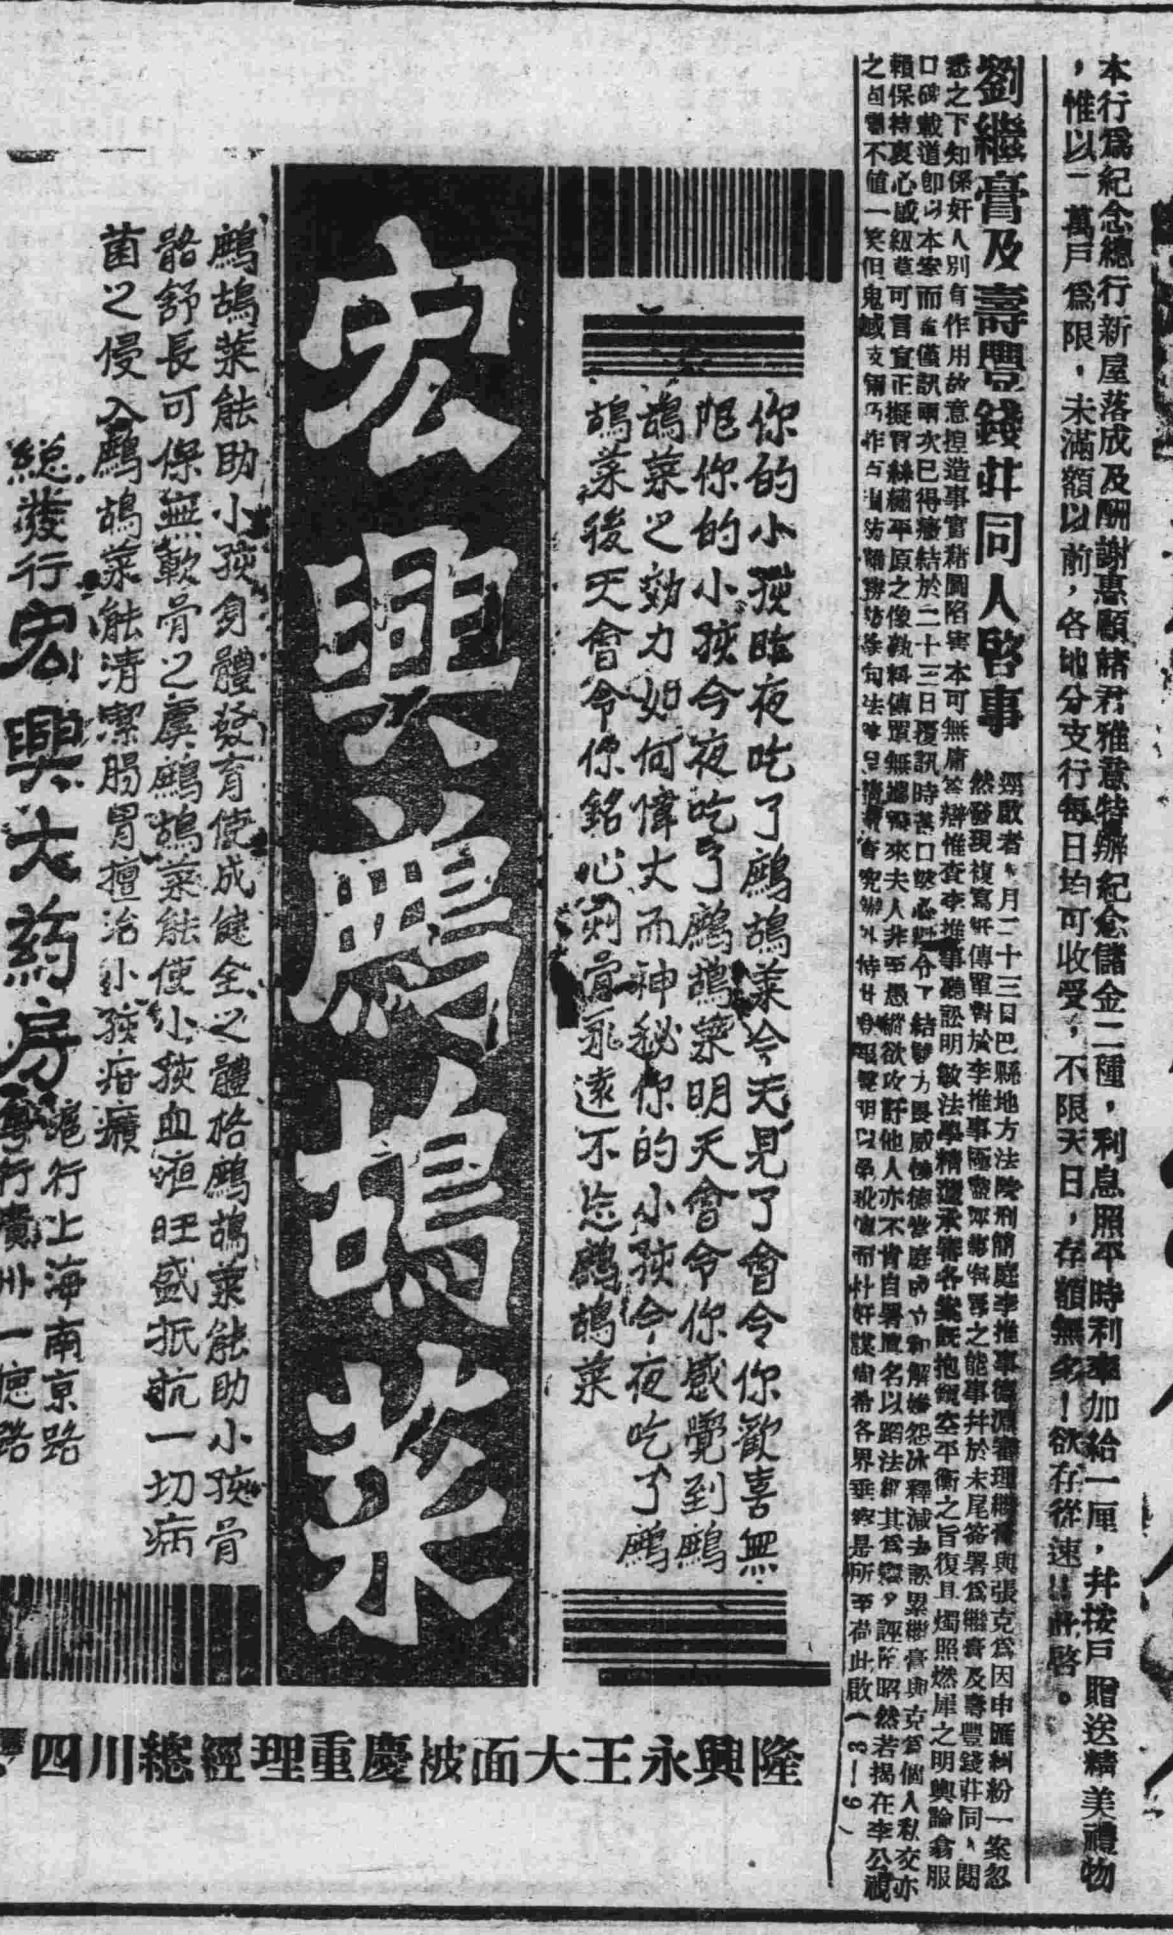 本行爲紀念總行新屋落成及酬謝惠顧諸君雅意特辦紀念儲金二種，利息照平時利率加給一厘，并按戶贈送精美禮物
，惟以一萬戶爲限，未滿額以前，各地分支行每日均可收受，不限天日，存額無多！欲存從速！！此啓。
劉繼膏及壽豐錢莊同人啓事
逕啟者月二十三日巴縣地方法院刑簡庭李推事審理繼膏與張克爲因申匯糾紛一案忽
然發現複寫傳單對於李推事極盡之能事幷於末尾簽署爲繼膏及壽豐錢莊同人閱
悉之下知係奸人別有作用故意揑造事實藉圖陷害本可無庸答辯惟查李推事聽訟明敏法學精承審各案既抱鑑空平衡之旨復且燭照燃犀之明輿論翕服
口碑載道卽以本案而僅訊兩次已得癥結於二十三日覆訊時令了結雙方畏威懷德當庭和解嫌怨冰釋減去訟累繼膏與克爲個人私交亦
賴保持衷心感可冒宣正擬買絲繡平原之像孰料傳單無端飛來夫人非至愚縱欲攻訐他人亦不肯自署眞名以蹈法網其爲誣陷昭然若揭在李公視
之固不值一笑但鬼蜮各界垂察是所至荷此啟（3—6）
你的小孩昨夜吃了鷓鴣菜今天見了會令你歡喜無
限你的小孩今夜吃了鷓鴣菜明天會令你感覺到鷓
鴣菜之効力如何偉大而神秘你的小孩今夜吃了鷓
鴣菜後天會令你銘心刻骨永遠不忘鷓鴣菜
宏興鷓鴣菜
鷓鴣菜能助小孩身體發育使成健全之體格鷓鴣菜能助小孩骨
骼舒長可保無軟骨之虞鷓鴣菜能使小孩血旺盛抵抗一切病
菌之侵入鷓鴣菜能清潔腸胃擅治小孩疳癪
總發行宏興大葯房
滬行上海南京路
粵行廣州一德路
四川總經理重慶被面大王永興隆